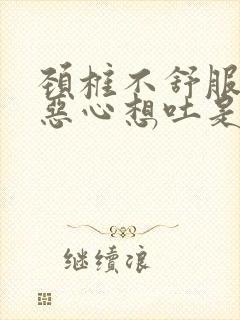 颈椎不舒服
恶心想吐是
继续浪